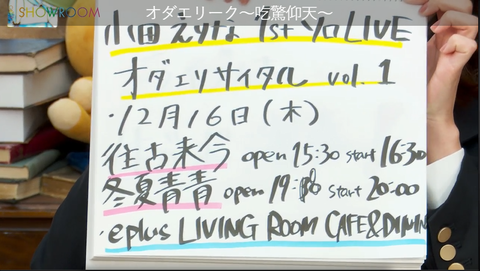 SHOWROOM
オダエリーク〜吃驚仰天〜
小田えりな 1st ソロLIVE
オダエリサイタル vol.1
・12月16日(木)
往古来今 open 15:30 start 16:30
冬夏青青 open 19: start 20:00
・eplus LIVING ROOM CAFE&DININ